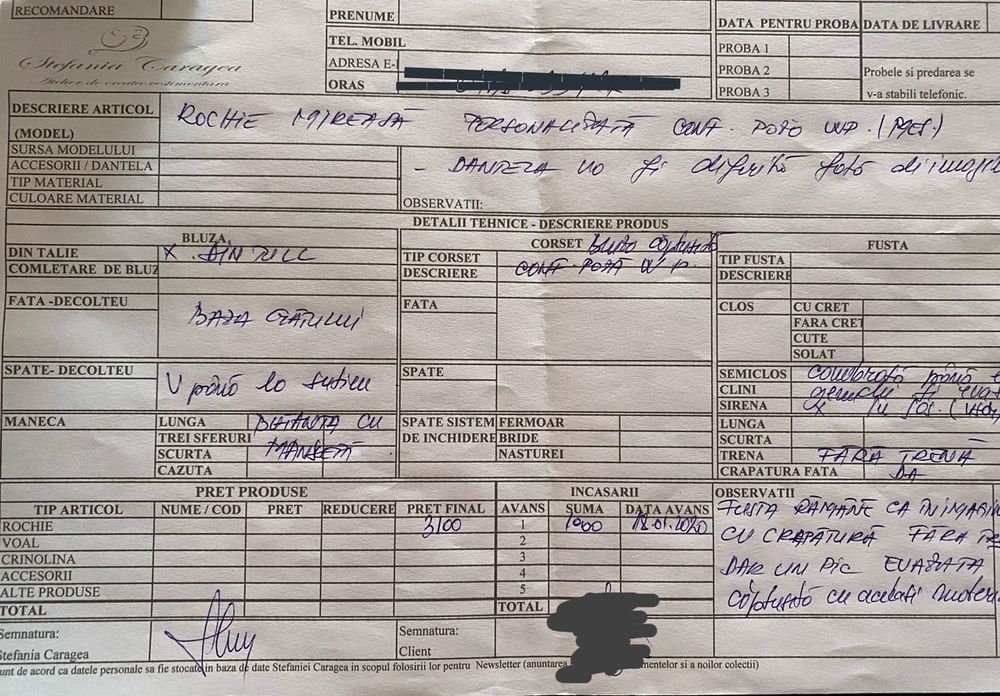 RECOMANDARE
PRENUME
TEL. MOBIL
ADRESA E-
ORAS
DATA PENTRU PROBA
DATA DE LIVRARE
PROBA 1
PROBA 2
PROBA 3
Probele si predarea se
v-a stabili telefonic.
Stefania Caragea
Atelier de creatie vestimentara
DESCRIERE ARTICOL
(MODEL)
ROCHIE MIREASĂ PERSONALIZATĂ CONF. POZĂ WP. (MES.)
SURSA MODELULUI
ACCESORII / DANTELA
TIP MATERIAL
CULOARE MATERIAL
- DANTELA va fi diferită față de imagi
OBSERVATII:
DETALII TEHNICE - DESCRIERE PRODUS
BLUZA
DIN TALIE X DIN TULL
COMLETARE DE BLUZ
FATA -DECOLTEU BAZA GÂTULUI
SPATE- DECOLTEU V până la sutien
MANECA
LUNGA BUFANTĂ CU
TREI SFERURI MANȘETĂ
SCURTA
CAZUTA
CORSET Bluza căptușită
TIP CORSET
DESCRIERE CONF POZĂ WP.
FATA
SPATE
SPATE SISTEM DE INCHIDERE
FERMOAR
BRIDE
NASTUREI
FUSTA
TIP FUSTA
DESCRIERE
CLOS
CU CRET
FARA CRET
CUTE
SOLAT
SEMICLOS cambrată până
CLINI genunchi și evaz
SIRENA X în jos.
LUNGA
SCURTA
TRENA FĂRĂ TRENĂ
CRAPATURA FATA DA
PRET PRODUSE
TIP ARTICOL NUME / COD PRET REDUCERE PRET FINAL
ROCHIE 3100
VOAL
CRINOLINA
ACCESORII
ALTE PRODUSE
TOTAL
INCASARII
AVANS SUMA DATA AVANS
1 1000 18.01.2020
2
3
4
5
TOTAL
OBSERVATII
FUSTA RĂMÂNE CA ÎN IMAGIN
CU CRĂPĂTURĂ FĂRĂ TRE
DAR UN PIC EVAZATĂ
căptușită cu același materi
Semnatura:
Stefania Caragea
Semnatura:
Client
unt de acord ca datele personale sa fie stocate in baza de date Stefaniei Caragea in scopul folosirii lor pentru Newsletter (anuntarea mentelor si a noilor colectii)